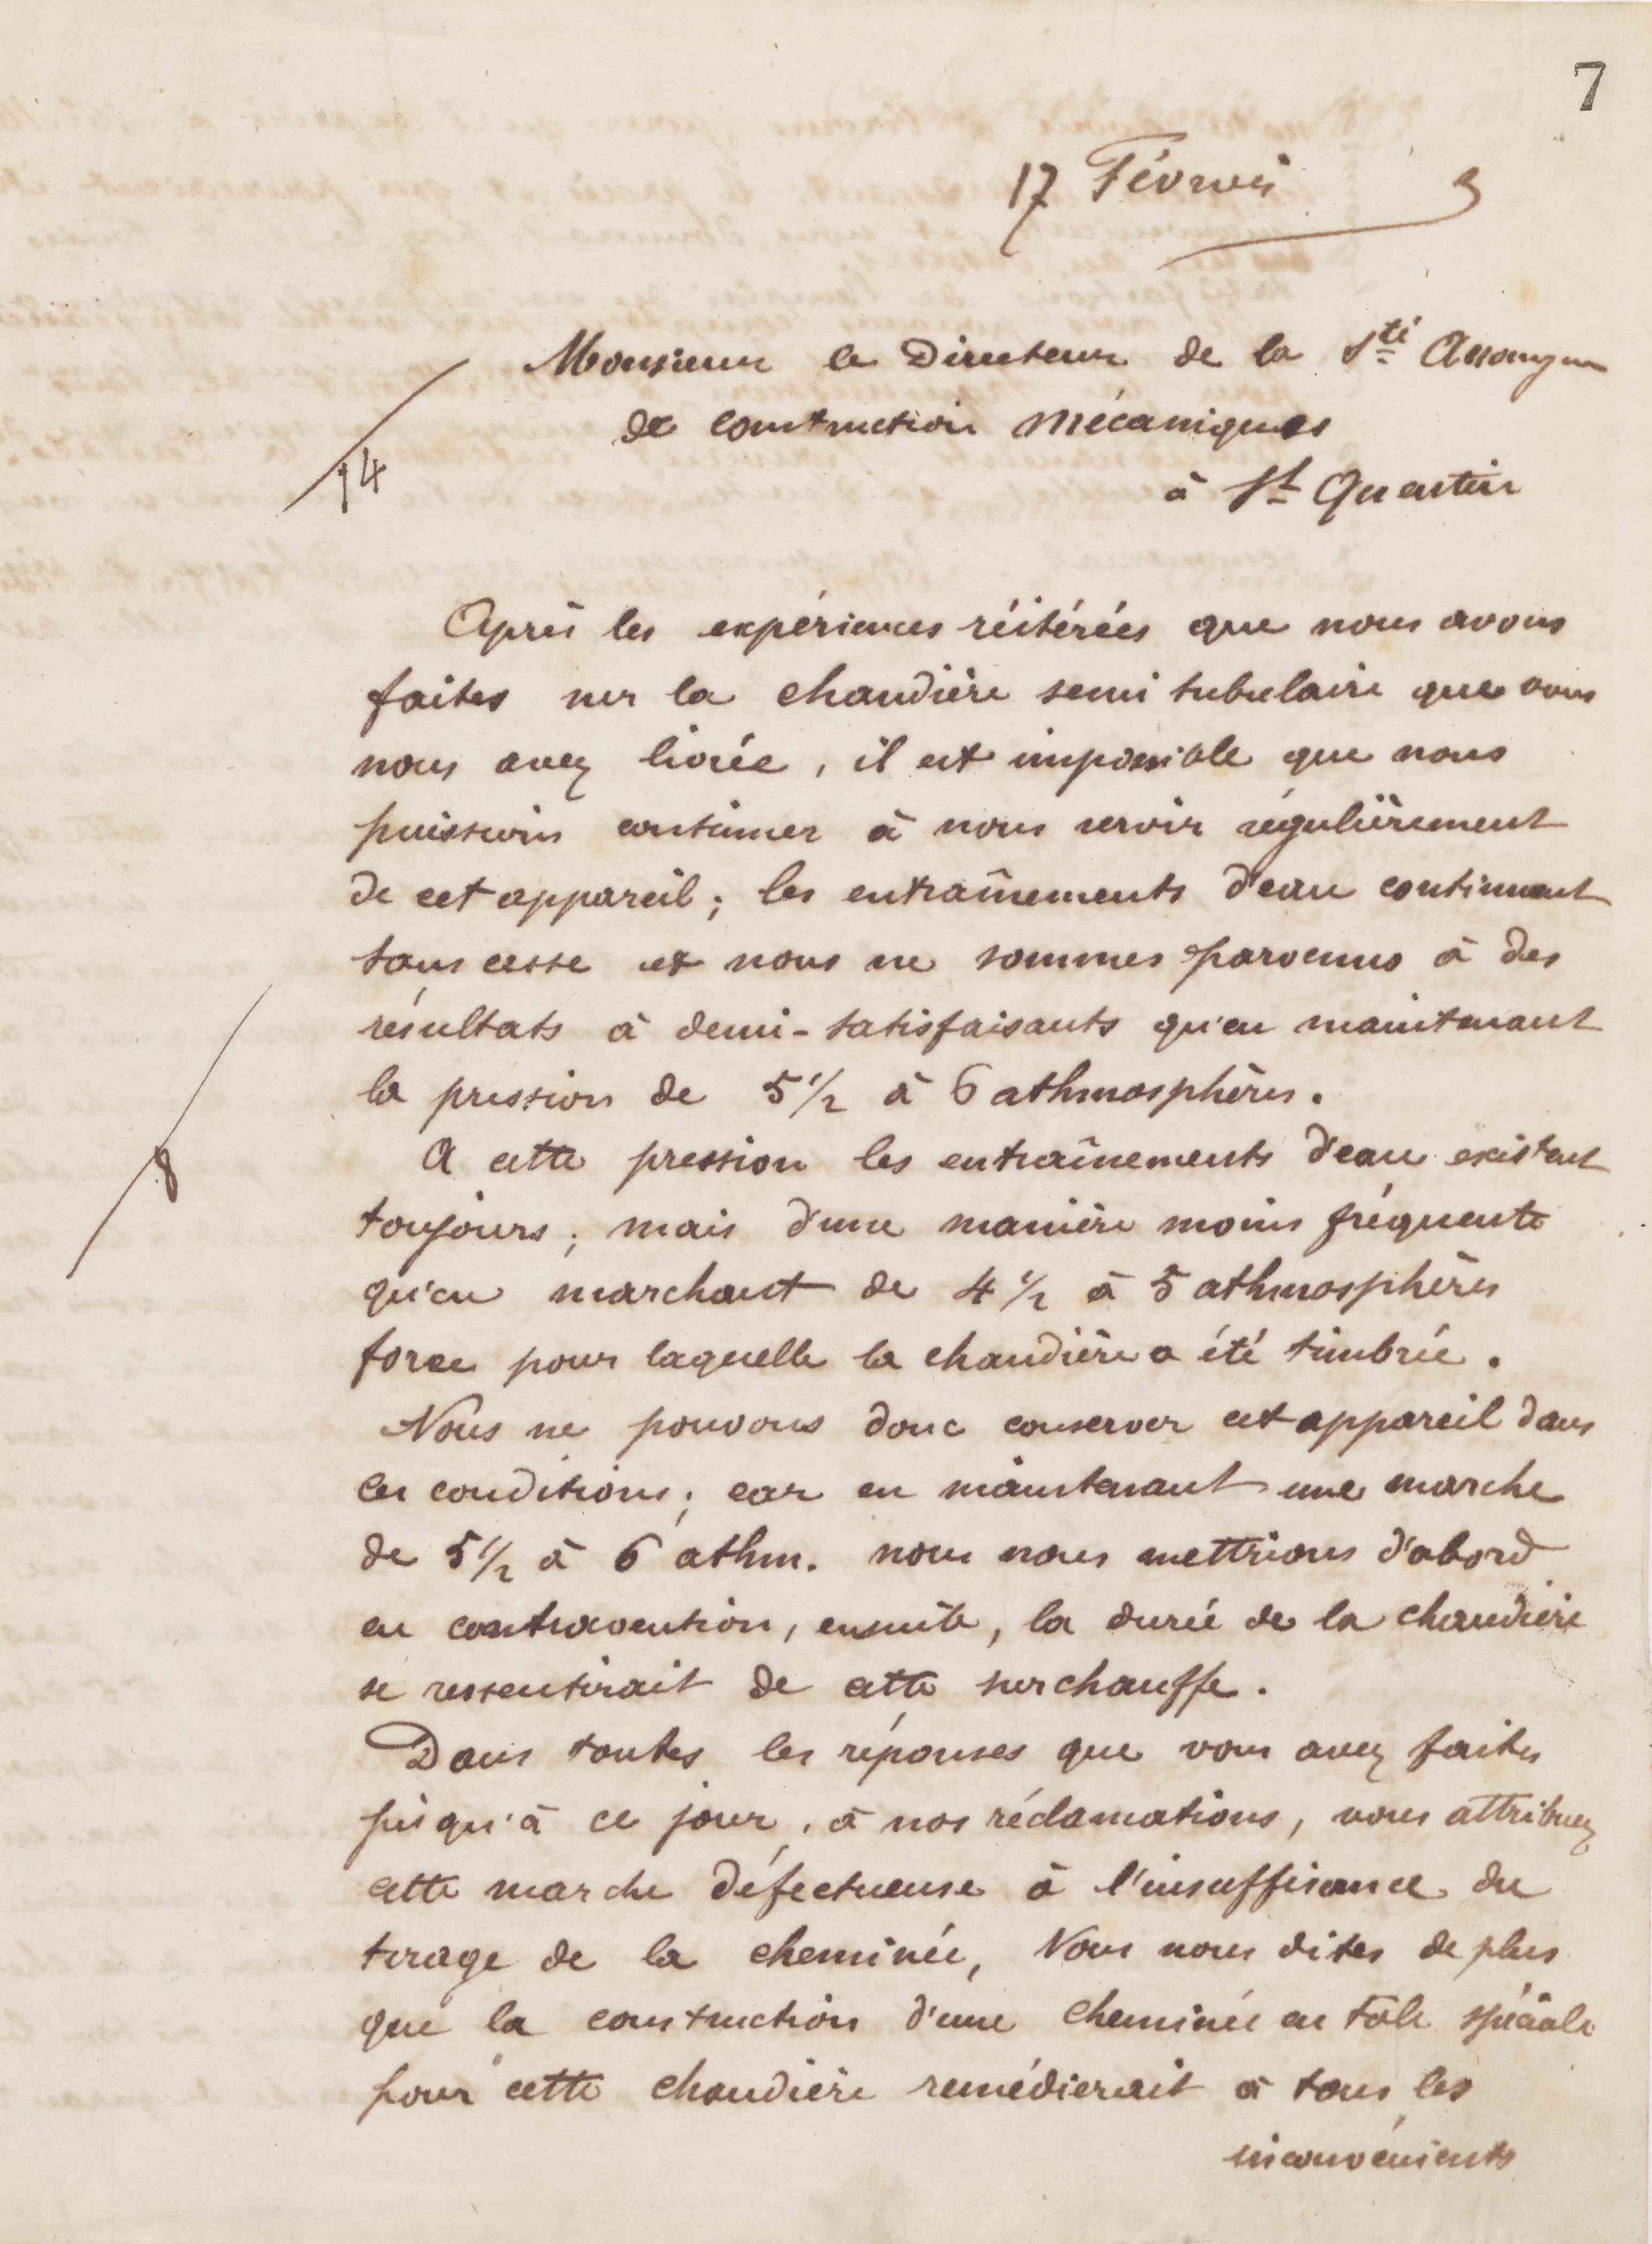 7
17 Février 3
Monsieur le Directeur de la Sté Anonyme
de construction mécaniques
à St Quentin
14
Après les expériences réitérées que nous avons
faites sur la chaudière semi tubulaire que vous
nous avez livrée, il est impossible que nous
puissions continuer à nous servir régulièrement
de cet appareil; les entraînements d'eau continuent
sans cesse et nous ne sommes parvenus à des
résultats à demi-satisfaisants qu'en maintenant
la pression de 5 1/2 à 6 athmosphères.
8
A cette pression les entraînements d'eau existent
toujours; mais d'une manière moins fréquente
qu'en marchant de 4 1/2 à 5 athmosphères
force pour laquelle la chaudière a été timbrée.
Nous ne pouvons donc conserver cet appareil dans
ces conditions; car en maintenant une marche
de 5 1/2 à 6 athm. nous nous mettrions d'abord
en contravention, ensuite, la durée de la chaudière
se ressentirait de cette surchauffe.
Dans toutes les réponses que vous avez faites
jusqu'à ce jour, à nos réclamations, vous attribuez
cette marche défectueuse à l'insuffisance du
tirage de la cheminée, Vous nous dites de plus
que la construction d'une cheminée en tôle spéciale
pour cette chaudière remédierait à tous les
inconvénients